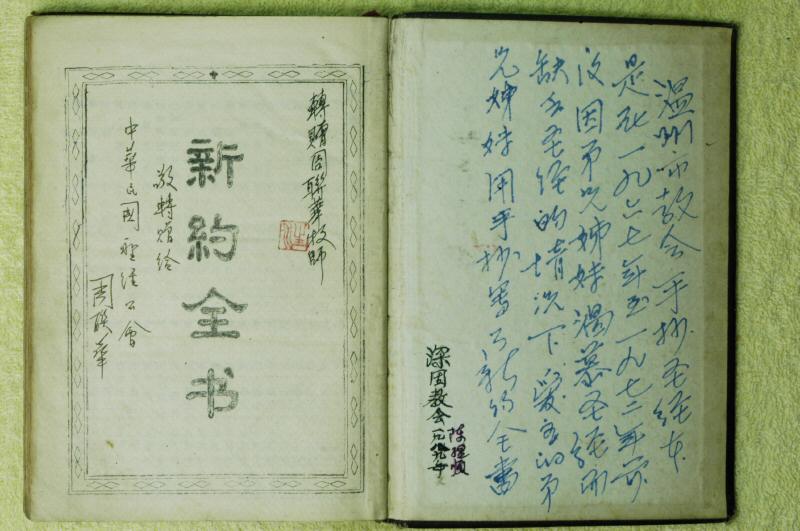 温州市教会手抄圣经本
是在一九六七年至一九七二年前
後因弟兄姊妹渴慕圣经而
缺乏圣经的情况下爱主的弟
兄姊妹用手抄写了新约全書
教会一九八九年
轉贈周聯華牧師
新約全书
敬轉贈給
中華民國聖經公會
周联華